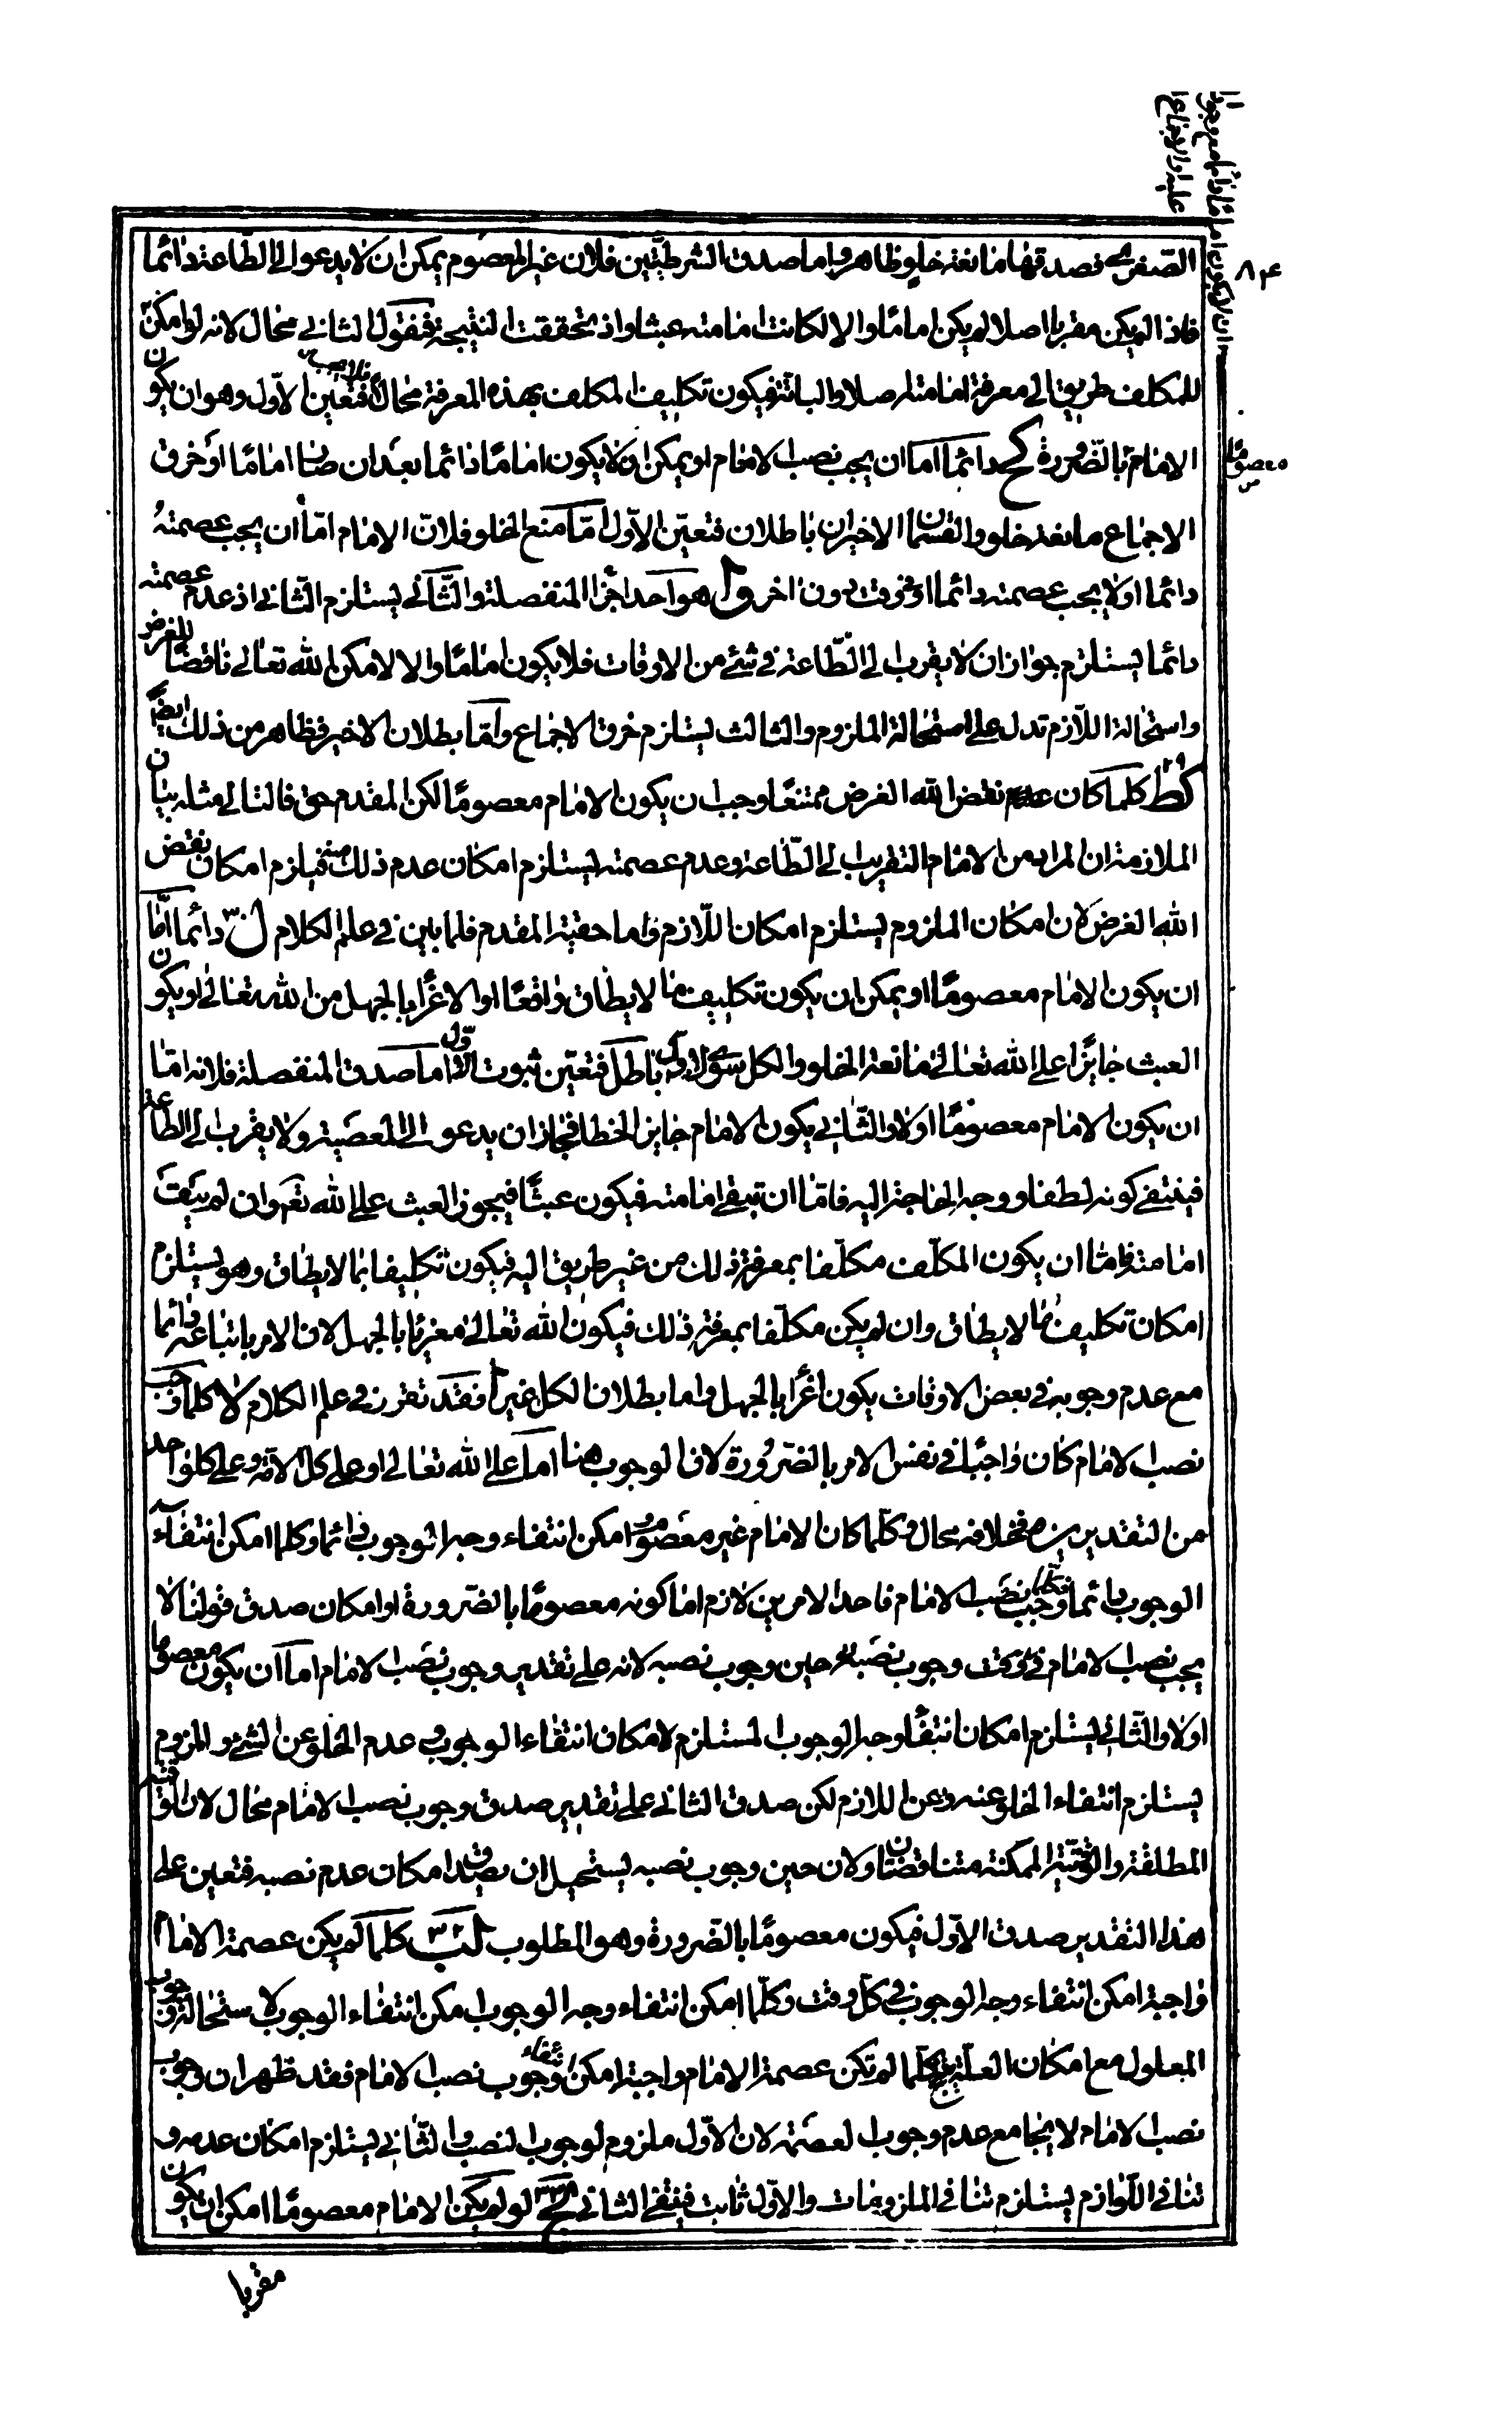 الصغرى فصدقها مانعة خلو ظاهر واما صدق الشرطيتين فلان غير المعصوم يمكن ان لا يدعو الى الطاعة دائما
فاذا لم يكن مقربا اصلا لم يكن اماما والا لكانت امامته عبثا واذ تحققت النتيجة فنقول الثاني محال لانه لو امكن
للمكلف طريق الى معرفة امامته اصلا والبتة فيكون تكليف المكلف بهذه المعرفة محالا فتعين الاول وهو ان يكون
الامام بالضرورة كح دائما اما ان يجب نصب الامام او يمكن ان لا يكون اماما دائما بعد ان صار اماما او خرق
الاجماع مانعة خلو والقسمان الاخيران باطلان فتعين الاول اما منع الخلو فلان الامام اما ان يجب عصمته
دائما او لا يجب عصمته دائما او في وقت دون اخر والاول هو احد اجزا المنفصلة والثاني يستلزم الثاني اذ عدم عصمته
دائما يستلزم جواز ان لا يقرب الى الطاعة في شئ من الاوقات فلا يكون اماما والا لامكن الله تعالى ناقضا للغرض
واستحالة اللازم تدل على استحالة الملزوم والثالث يستلزم خرق الاجماع واما بطلان الاخير فظاهر من ذلك ايضا
كط كلما كان نقض الله الغرض ممتنعا وجب ان يكون الامام معصوما لكن المقدم حق فالتالي مثله بيان
الملازمة ان المراد من الامام التقريب الى الطاعة وعدم عصمته يستلزم امكان عدم ذلك منه فيلزم امكان نقض
الله الغرض لان امكان الملزوم يستلزم امكان اللازم واما حقية المقدم فلما بين في علم الكلام ل دائما اما
ان يكون الامام معصوما او يمكن ان يكون تكليف ما لا يطاق واقعا او الاغراء بالجهل من الله تعالى او يكون
العبث جايزا على الله تعالى مانعة الخلو والكل سوى الاول باطل فتعين ثبوت الاول اما صدق المنفصلة فلانه اما
ان يكون الامام معصوما اولا والثاني يكون الامام جايز الخطا فجاز ان يدعو الى المعصية ولا يقرب الى الطاعة
فينتفي كونه لطفا ووجه الحاجة اليه فاما ان تبقى امامته فيكون عبثا فيجوز العبث على الله تعم وان لم يبق
امامته فاما ان يكون المكلف مكلفا بمعرفة ذلك من غير طريق اليه فيكون تكليفا بما لا يطاق وهو يستلزم
امكان تكليف ما لا يطاق وان لم يكن مكلفا بمعرفة ذلك فيكون الله تعالى مغريا بالجهل لان الامر باتباعه دائما
مع عدم وجوبه في بعض الاوقات يكون اغراء بالجهل واما بطلان الكل غير ا فقد تقرر في علم الكلام لا كلما وجب
نصب الامام كان واجبا في نفس الامر بالضرورة لان الوجوب هنا اما على الله تعالى او على كل الامة وعلى كل واحد
من التقديرين فخلافه محال وكلما كان الامام غير معصوم امكن انتفاء وجه الوجوب دائما وكلما امكن انتفاء
الوجوب دائما فكلما وجب نصب الامام فاحد الامرين لازم اما كونه معصوما بالضرورة او امكان صدق قولنا لا
يجب نصب الامام في وقت وجوب نصبه حين وجوب نصبه لانه على تقدير وجوب نصب الامام اما ان يكون معصوما
اولا والثاني يستلزم امكان انتفاء وجه الوجوب المستلزم لامكان انتفاء الوجوب عدم الخلو عن الشئ والملزوم
يستلزم انتفاء الخلو عنه وعن اللازم لكن صدق الثاني على تقدير صدق وجوب نصب الامام محال لان الوقتية
المطلقة والوقتية الممكنة متناقضتان ولان حين وجوب نصبه يستحيل ان يصدق امكان عدم نصبه فتعين على
هذا التقدير صدق الاول فيكون معصوما بالضرورة وهو المطلوب لب ٣٢ كلما لم يكن عصمة الامام
واجبة امكن انتفاء وجه الوجوب في كل وقت وكلما امكن انتفاء وجه الوجوب امكن انتفاء الوجوب لاستحالة وجوب
المعلول مع امكان العلة ينتج كلما لم تكن عصمة الامام واجبة امكن انتفاء وجوب نصب الامام فقد ظهر ان وجوب
نصب الامام لا يجامع عدم وجوب العصمة لان الاول ملزوم لوجوب النصب والثاني يستلزم امكان عدمه و
تنافي اللوازم يستلزم تنافي الملزومات والاول ثابت فينتفي الثاني لج ٣٣ لو لم يكن الامام معصوما امكن ان يكون
مقربا
٨٤
معصوما